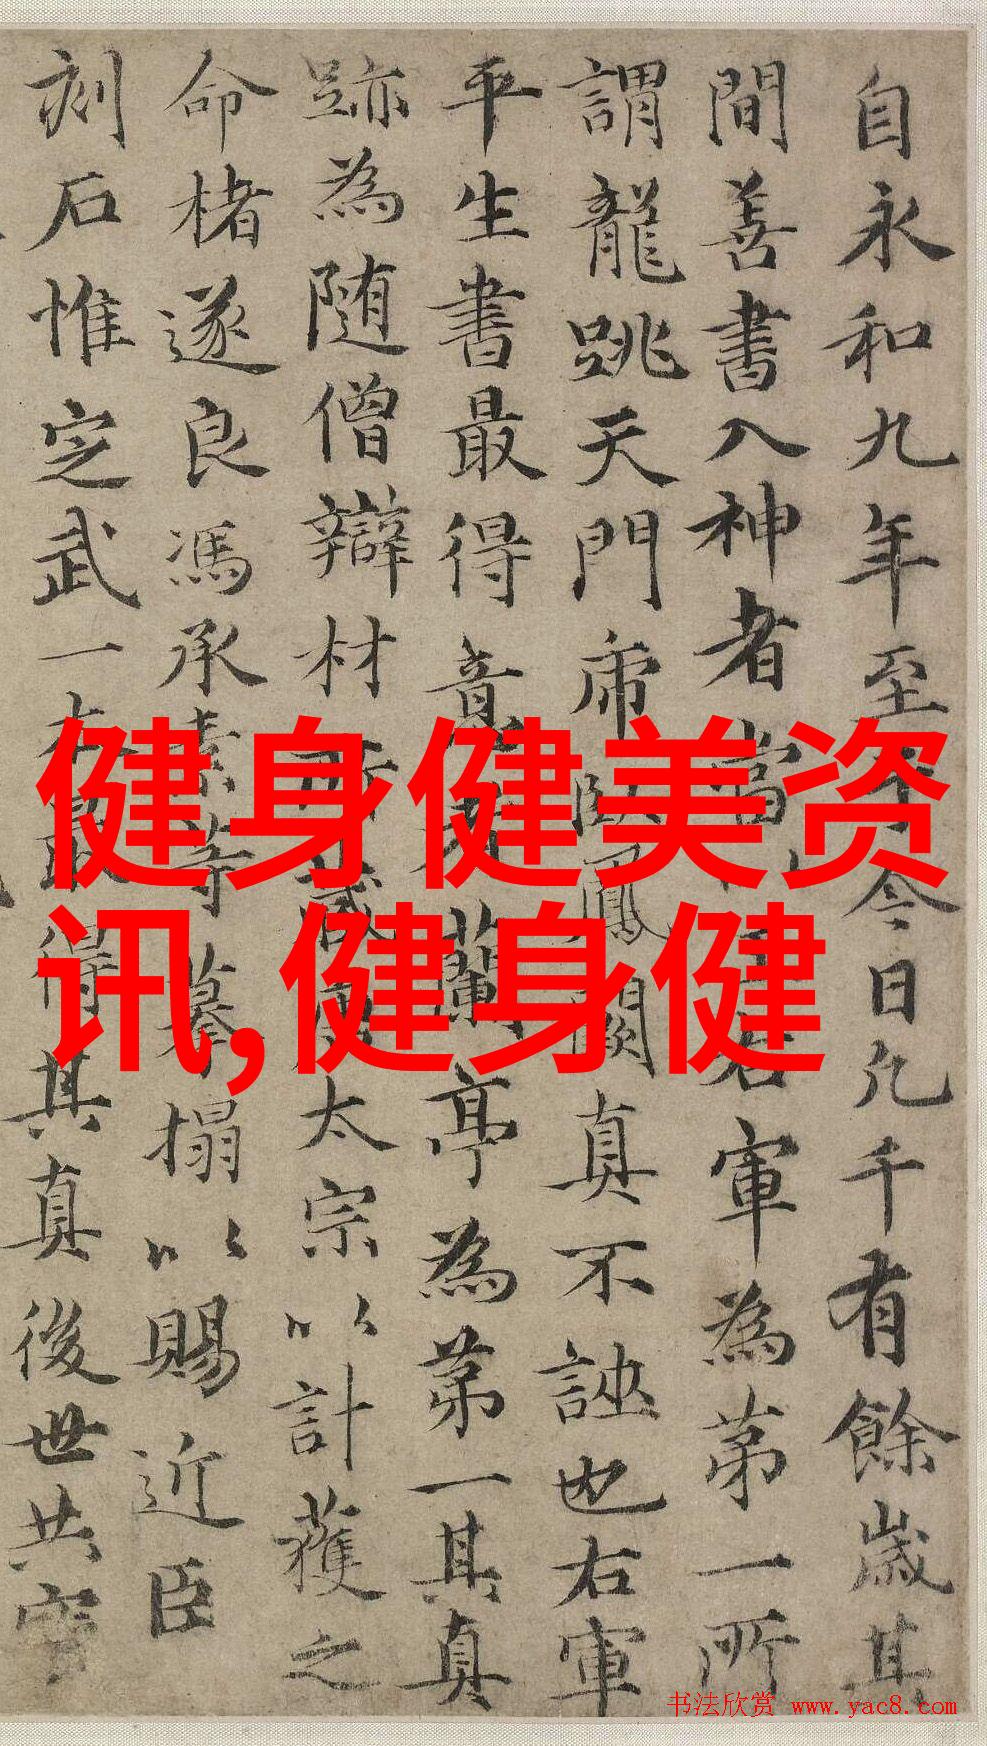 自永和九年至于今日凡千有餘歲其
間善書入神者當右軍為第一所
謂龍跳天門席臥鳳閣真不誣也右軍
平生書最得意者蘭亭為第一其真
跡為随僧辯材所藏太宗以計獲之
命楮遂良馮承素等摹搨以賜近臣
刻石惟定武一本最得其真後世共寳
健身健美资
讯,健身健
书法欣赏 www.yac8.com